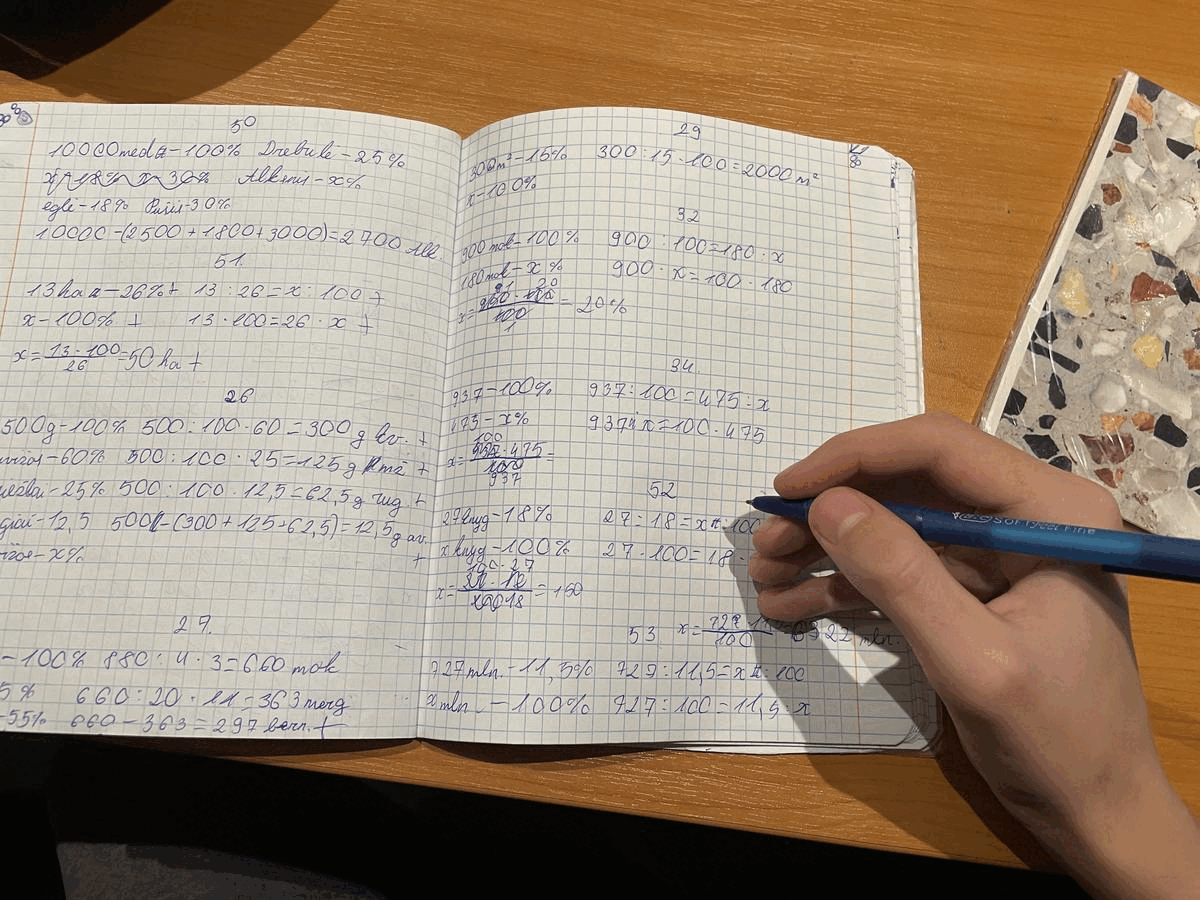 50
10000 med - 100% Drebulė - 25%
Alksnis - x%
eglė - 18% Pušis - 30%
10000 - (2500 + 1800 + 3000) = 2700
51.
13 ha - 26% + 13 : 26 = x : 100 +
x - 100% + 13 · 100 = 26 · x +
x = 13 · 100 / 26 = 50 ha +
26
500g - 100% 500 : 100 · 60 = 300 g kv. +
60% 500 : 100 · 25 = 125 g +
25% 500 : 100 · 12,5 = 62,5 g rug. +
12,5 500 - (300 + 125 + 62,5) = 12,5 g av.
x% +
27.
- 100% 880 : 4 · 3 = 660 mok
5% 660 : 20 · 11 = 363 merg
- 55% 660 - 363 = 297 bern. +
29
300 m² - 15% 300 : 15 · 100 = 2000 m²
x - 100%
32
900 mok - 100% 900 : 100 = 180 : x
180 mok - x % 900 · x = 100 · 180
= 20%
34.
937 - 100% 937 : 100 = 475 : x
475 - x% 937 · x = 100 · 475
52
27 knyg - 18% 27 : 18 = x : 100
x knyg - 100% 27 · 100 = 18 ·
100 · 27
= 150
53
727 mln. - 11,5% 727 : 11,5 = x : 100
x mln - 100% 727 : 100 = 11,5 · x